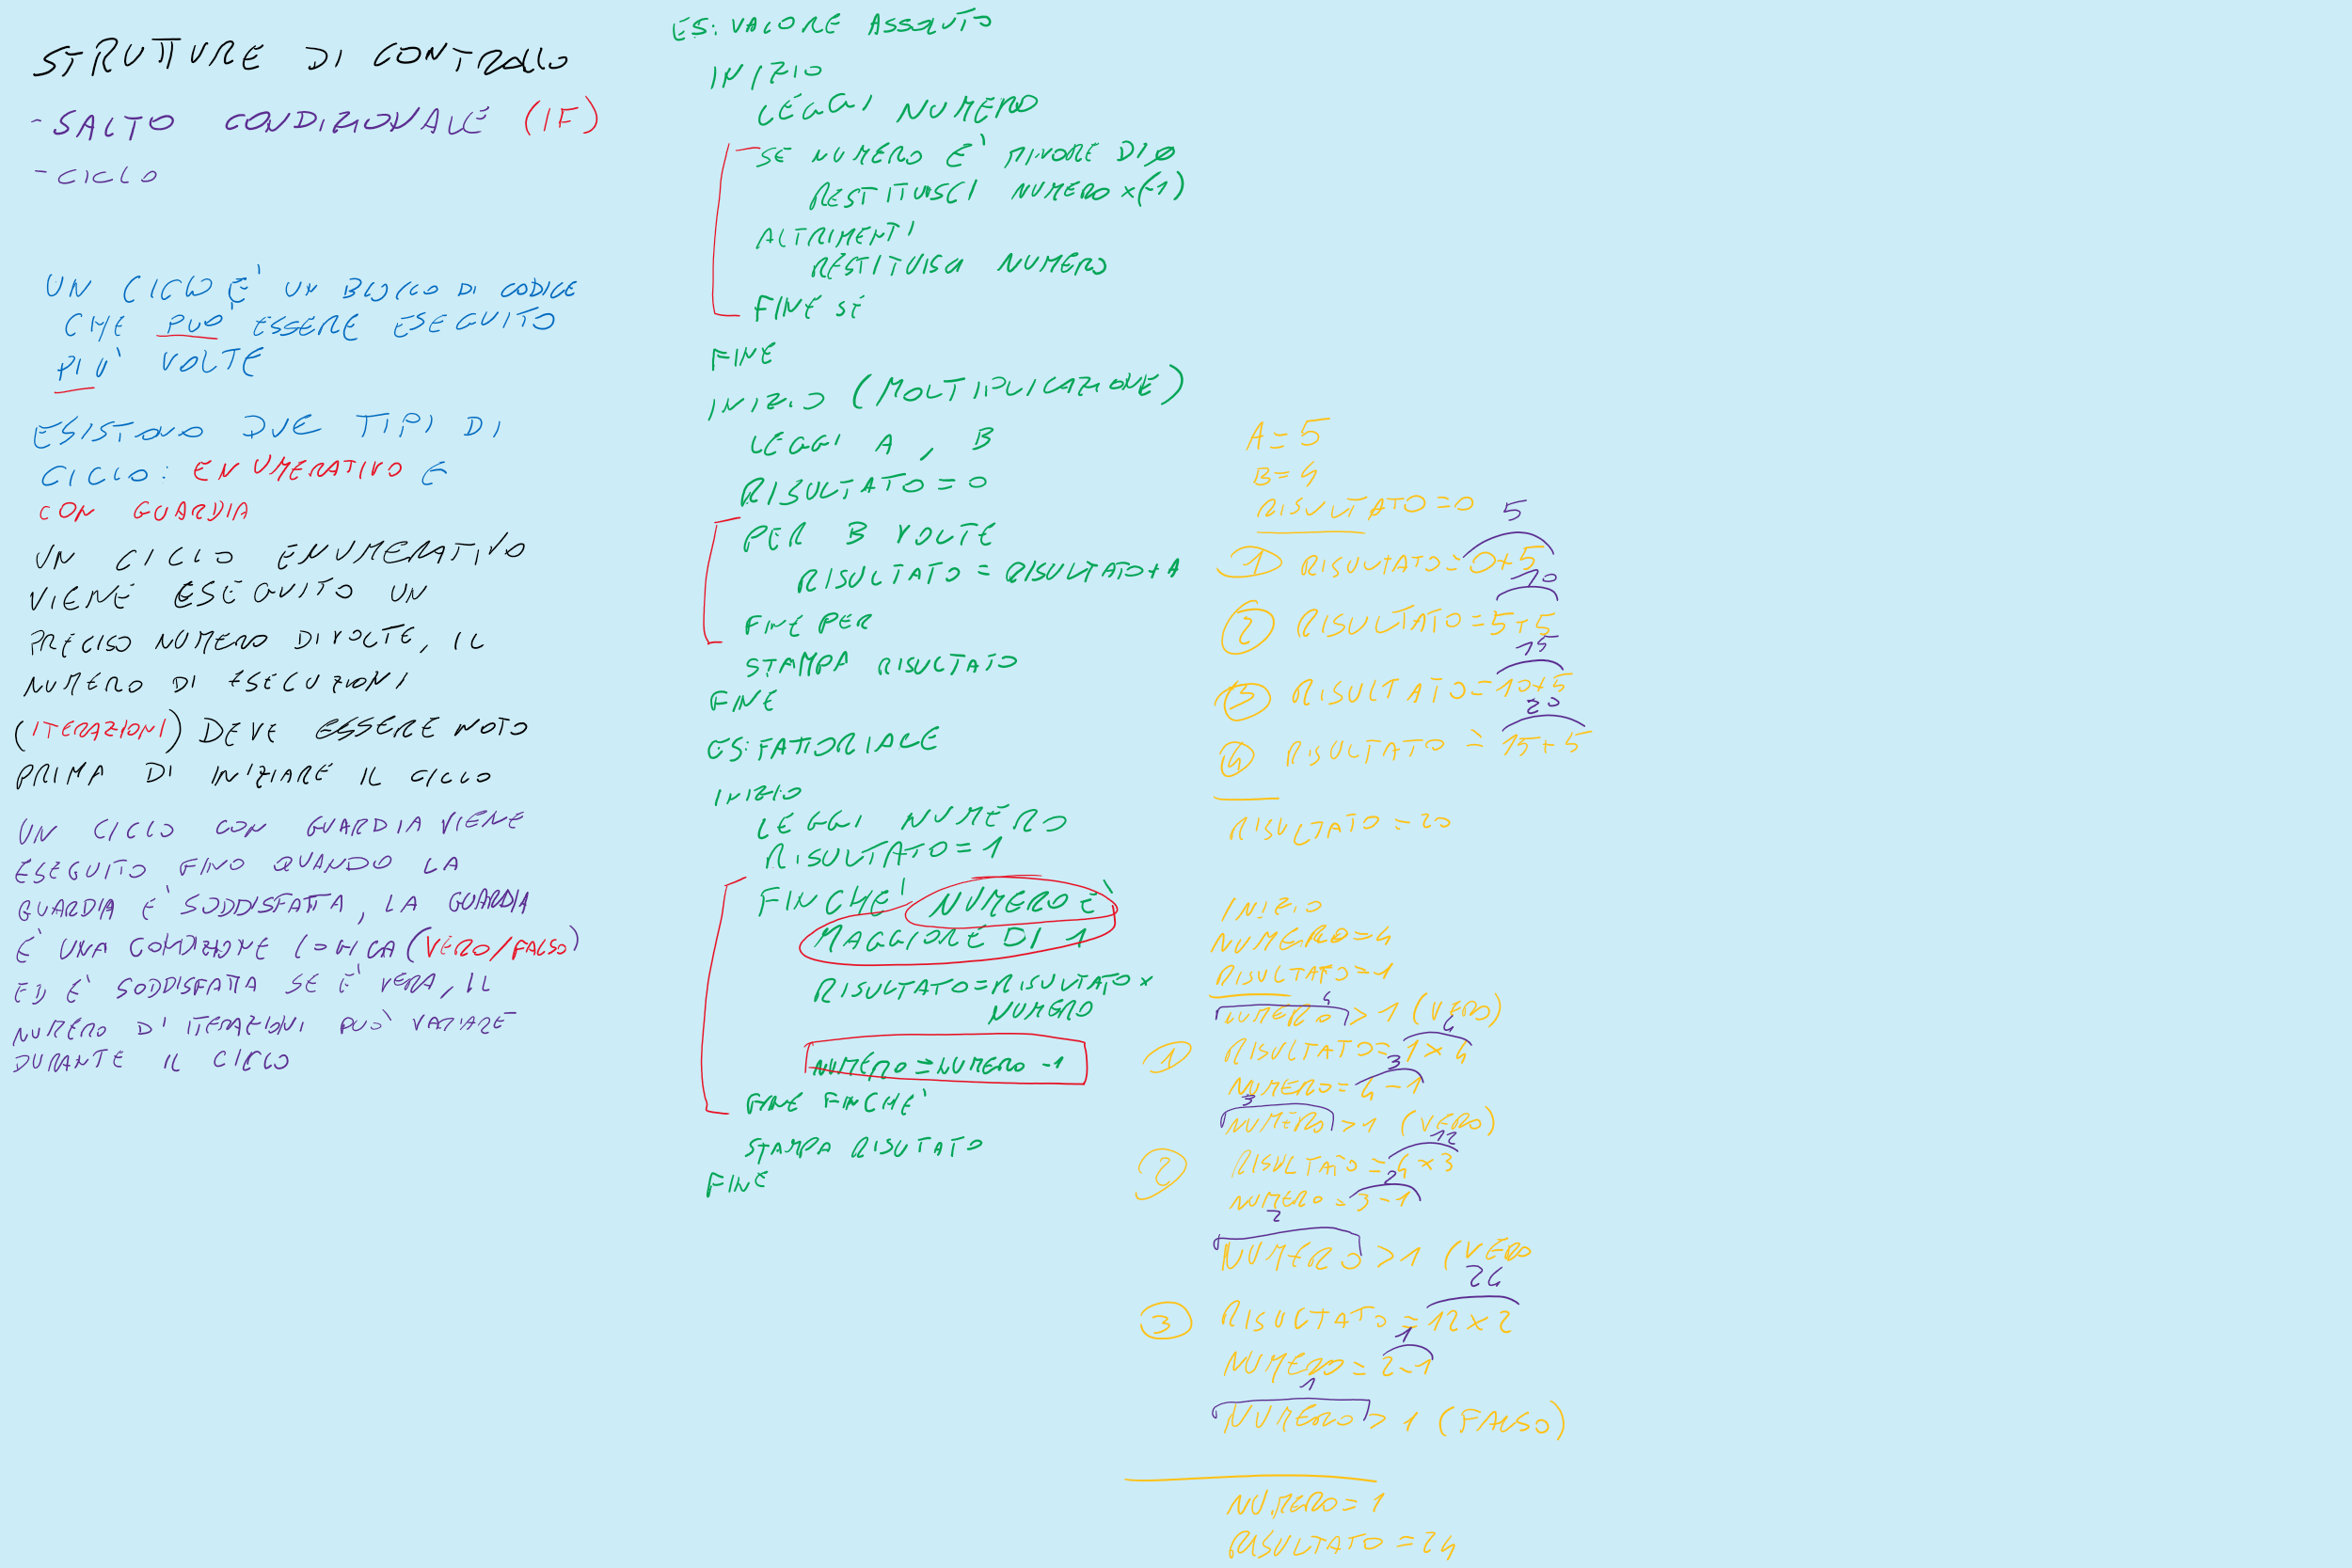 STRUTTURE DI CONTROLLO
- SALTO CONDIZIONALE (IF)
- CICLO
UN CICLO È UN BLOCCO DI CODICE
CHE PUO' ESSERE ESEGUITO
PIU' VOLTE
ESISTONO DUE TIPI DI
CICLO: ENUMERATIVO E
CON GUARDIA
UN CICLO ENUMERATIVO
VIENE ESEGUITO UN
PRECISO NUMERO DI VOLTE, IL
NUMERO DI ESECUZIONI
(ITERAZIONI) DEVE ESSERE NOTO
PRIMA DI INIZIARE IL CICLO
UN CICLO CON GUARDIA VIENE
ESEGUITO FINO QUANDO LA
GUARDIA E' SODDISFATTA, LA GUARDIA
E' UNA CONDIZIONE LOGICA (VERO/FALSO)
ED E' SODDISFATTA SE E' VERA, IL
NUMERO DI ITERAZIONI PUÒ VARIARE
DURANTE IL CICLO
ES: VALORE ASSOLUTO
INIZIO
LEGGI NUMERO
SE NUMERO E' MINORE DI 0
RESTITUISCI NUMERO x(-1)
ALTRIMENTI
RESTITUISCI NUMERO
FINE SE
FINE
INIZIO (MOLTIPLICAZIONE)
LEGGI A, B
RISULTATO = 0
PER B VOLTE
RISULTATO = RISULTATO + A
FINE PER
STAMPA RISULTATO
FINE
ES: FATTORIALE
INIZIO
LEGGI NUMERO
RISULTATO = 1
FINCHE' NUMERO È
MAGGIORE DI 1
RISULTATO = RISULTATO x
NUMERO
NUMERO = NUMERO -1
FINE FINCHE'
STAMPA RISUTATO
FINE
A = 5
B = 4
RISULTATO = 0
5
1 RISULTATO = 0+5
10
2 RISULTATO = 5+5
15
3 RISULTATO = 10+5
20
4 RISULTATO = 15+5
RISULTATO = 20
INIZIO
NUMERO = 4
RISULTATO = 1
4
NUMERO > 1 (VERO)
4
1 RISULTATO = 1 x 4
3
NUMERO = 4 - 1
3
NUMERO > 1 (VERO)
12
2 RISULTATO = 4 x 3
2
NUMERO = 3 - 1
2
NUMERO > 1 (VERO
24
3 RISULTATO = 12 x 2
1
NUMERO = 2 - 1
1
NUMERO > 1 (FALSO)
NUMERO = 1
RISULTATO = 24